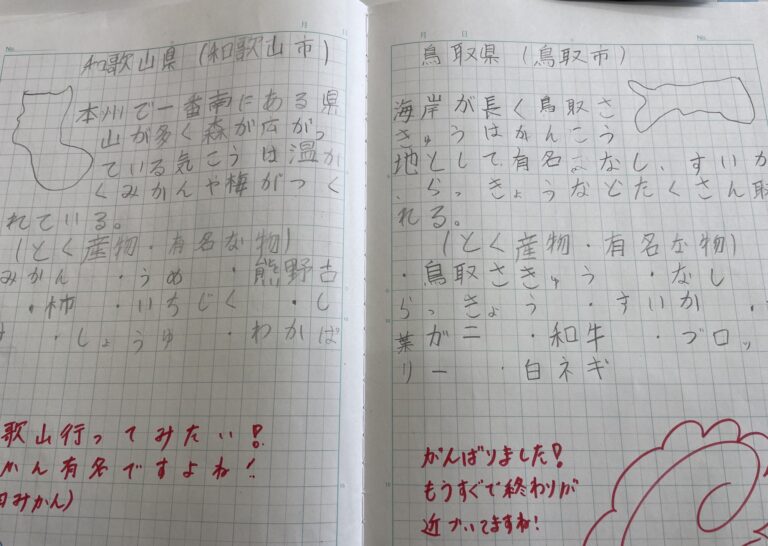 No.
月 日
和歌山県(和歌山市)
本州で一番南にある県
山が多く森が広がっ
ている気こうは温か
くみかんや梅がつく
れている。
(とく産物・有名な物)
みかん ・うめ ・熊野古
・柿 ・いちじく ・し
・しょうゆ ・わかば
歌山行ってみたい!
かん有名ですよね!
田みかん)
No.
月 日
鳥取県(鳥取市)
海岸が長く鳥取さ
きゅうはかんこう
地として有名。なし、すいか
、らっきょうなどたくさん取
れる。
(とく産物・有名な物)
・鳥取さきゅう ・なし
らっきょう ・すいか ・
葉ガニ ・和牛 ・ブロッ
リー ・白ネギ
がんばりました!
もうすぐで終わりが
近づいてますね!